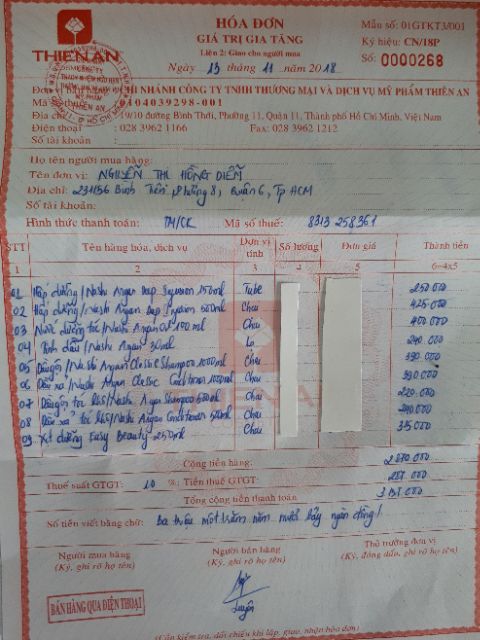 HÓA ĐƠN
GIÁ TRỊ GIA TĂNG
Liên 2: Giao cho người mua
Ngày 13 tháng 11 năm 2018
Mẫu số: 01GTKT3/001
Ký hiệu: CN/18P
Số: 0000268
THIÊN AN
CHI NHÁNH CÔNG TY TNHH THƯƠNG MẠI VÀ DỊCH VỤ MỸ PHẨM THIÊN AN
Mã số thuế 04039298-001
Địa chỉ 19/10 đường Bình Thới, Phường 11, Quận 11, Thành phố Hồ Chí Minh, Việt Nam
Điện thoại : 028 3962 1166 Fax: 028 3962 1212
Số tài khoản :
Họ tên người mua hàng:
Tên đơn vị: NGUYỄN THỊ HỒNG DIỄM
Địa chỉ: Bình Tiên, Phường 8, Quận 6, Tp HCM
Số tài khoản:
Hình thức thanh toán: TM/CK Mã số thuế: 8313 258361
STT Tên hàng hóa, dịch vụ Đơn vị tính Số lượng Đơn giá Thành tiền
1 2 3 4 5 6=4x5
01 Hấp dưỡng/Nashi Argan Deep Infusion 150ml Tube 250.000
02 Hấp dưỡng/Nashi Argan Deep Infusion 500ml Chai 425.000
03 Nước dưỡng tóc/Nashi Argan Oil 100ml Chai 400.000
04 Tinh dầu/Nashi Argan 30ml Lọ
05 Dầu gội/Nashi Argan Classic Shampoo 1000ml Chai 390.000
06 Dầu xả/Nashi Argan Classic Conditioner 1000ml Chai 390.000
07 Dầu gội tóc Argan Shampoo 500ml Chai 220.000
08 Dầu xả tóc Argan Conditioner 500ml Chai
09. Xịt dưỡng Easy Beauty 250ml Chai
Cộng tiền hàng: 2 870.000
Thuế suất GTGT: 10 %: Tiền thuế GTGT: 287.000
Tổng cộng tiền thanh toán 3 157.000
Số tiền viết bằng chữ: Ba triệu một trăm năm mươi bảy ngàn đồng!
Người mua hàng Người bán hàng Thủ trưởng đơn vị
(Ký, ghi rõ họ tên) (Ký, ghi rõ họ tên) (Ký, đóng dấu, ghi rõ họ tên)
BÁN HÀNG QUA ĐIỆN THOẠI
(Cần kiểm tra, đối chiếu khi lập, giao, nhận hóa đơn)